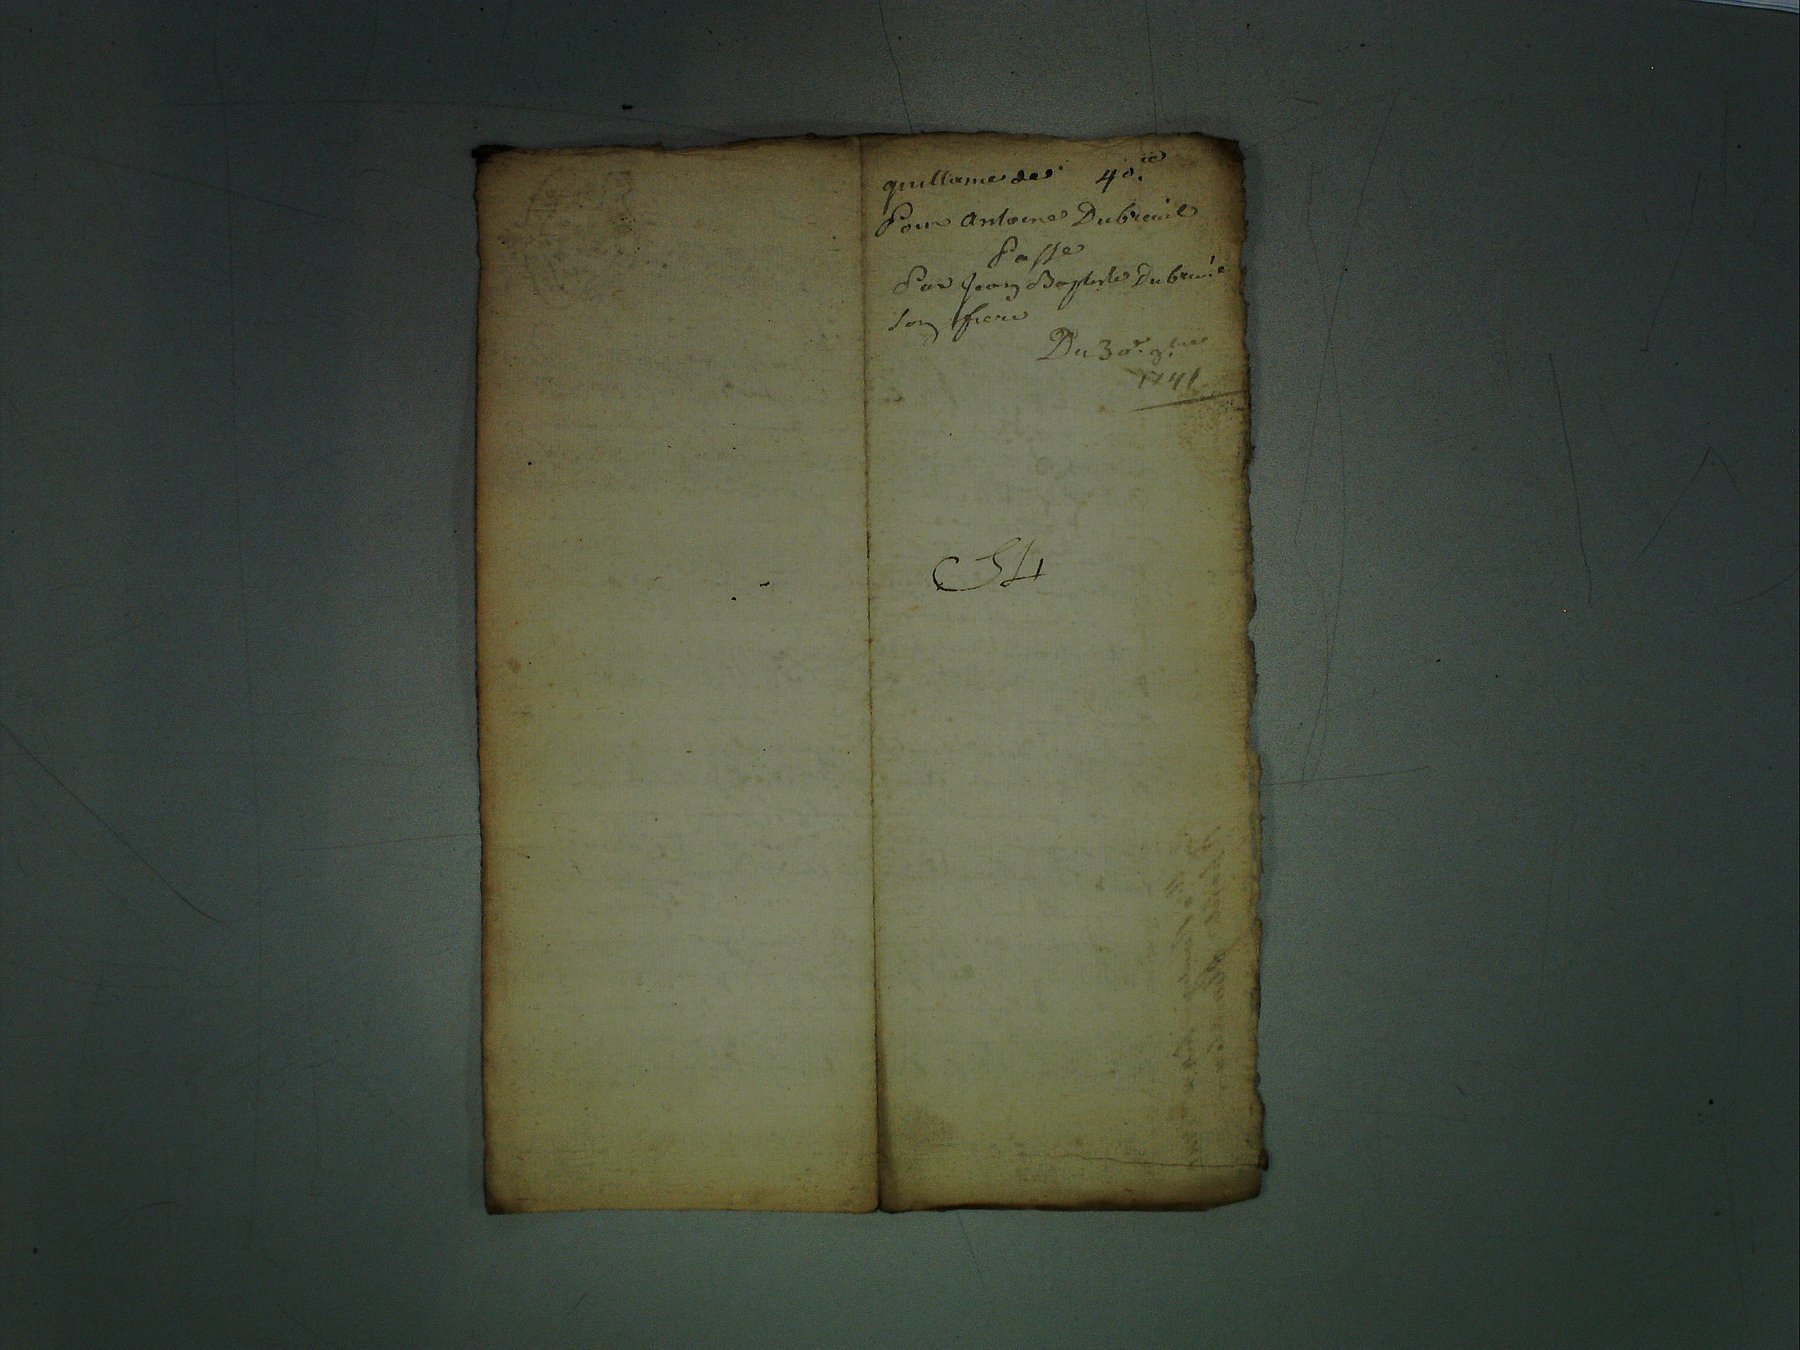 quittance de 40.ᵗᵗ
Pour Antoine Dubreuil
Passe
Par Jean Baptiste Dubreuil
son frere
Du 30.ᵉ 9.ᵇʳᵉ
1741
54